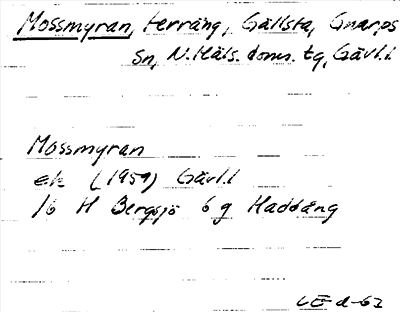 Mossmyran, terräng, Gällsta, Gnarps
sn, N. Häls. doms. tg, Gävl. l
Mossmyran
ek (1959) Gävl. l
16 H Bergsjö 6 g Haddäng